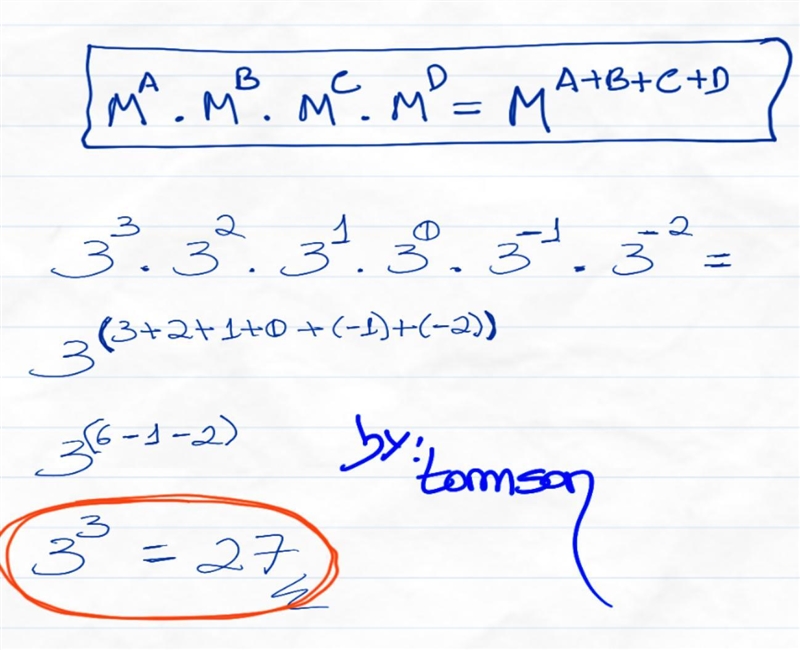 M^A . M^B . M^C . M^D = M^(A+B+C+D)
3^3 . 3^2 . 3^1 . 3^0 . 3^-1 . 3^-2 =
3^(3+2+1+0+(-1)+(-2))
3^(6-1-2)
by: tormson
3^3 = 27